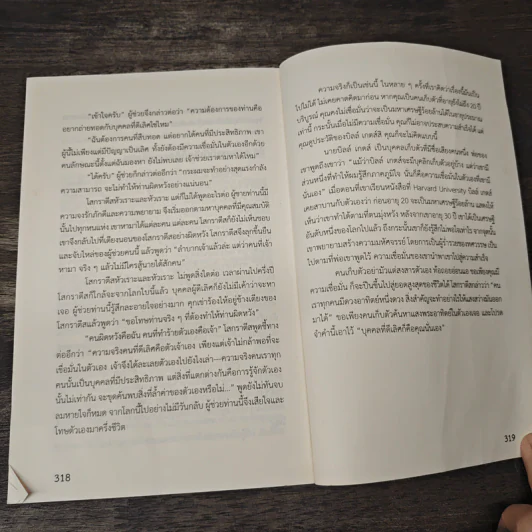 "เข้าใจครับ" ผู้ช่วยจึงกล่าวต่อว่า "ความต้องการของท่านคือ
อยากถ่ายทอดกับบุคคลที่ดีเลิศใช่ไหม"
"ฉันต้องการคนที่สืบทอด แต่อยากได้คนที่มีประสิทธิภาพ เขา
ผู้นี้ไม่เพียงแต่มีปัญญาเป็นเลิศ ทั้งยังต้องมีความเชื่อมั่นในตัวเองอีกด้วย
คนลักษณะนี้ตั้งแต่ฉันมองหา ยังไม่พบเลย เจ้าช่วยเราตามหาได้ไหม"
"ได้ครับ" ผู้ช่วยก็กล่าวต่ออีกว่า "กระผมจะทำอย่างสุดแรงกำลัง
ความสามารถ จะไม่ทำให้ท่านผิดหวังอย่างแน่นอน"
โสกราตีสหัวเราะและหัวเราะ แต่ก็ไม่ได้พูดอะไรต่อ ผู้ชายท่านนี้มี
ความจงรักภักดีและความพยายาม จึงเริ่มออกตามหาบุคคลที่มีคุณสมบัติ
นั้นไปทุกหนแห่ง เขาหามาได้แต่ละคน แต่ละคน โสกราตีสก็ยังไม่เห็นชอบ
เขาจึงกลับไปที่เตียงนอนของโสกราตีสอย่างผิดหวัง โสกราตีสจึงลุกขึ้นยืน
และจับไหล่ของผู้ช่วยคนนี้ แล้วพูดว่า "ลำบากเจ้าแล้วล่ะ แต่ว่าคนที่เจ้า
หามา จริง ๆ แล้วไม่มีใครสู้นายได้สักคน"
โสกราตีสหัวเราะและหัวเราะ ไม่พูดสิ่งใดต่อ เวลาผ่านไปครึ่งปี
โสกราตีสก็ใกล้จะจากโลกไปนี้แล้ว บุคคลผู้ดีเลิศก็ยังไม่มีเค้าว่าจะหา
เจอ ผู้ช่วยท่านนี้รู้สึกละอายใจอย่างมาก คุกเข่าร้องไห้อยู่ข้างเตียงของ
โสกราตีสแล้วพูดว่า "ขอโทษท่านจริง ๆ ที่ต้องทำให้ท่านผิดหวัง"
"คนผิดหวังคือฉัน คนที่ทำร้ายตัวเองคือเจ้า" โสกราตีสพูดขึ้ทาง
ต่ออีกว่า "ความจริงคนที่ดีเลิศคือตัวเจ้าเอง เพียงแต่เจ้าไม่กล้าพอที่จะ
เชื่อมั่นในตัวเอง เจ้าจึงได้ละเลยตัวเองไปยังไงเล่า—ความจริงคนเราทุก
คนนั้นเป็นบุคคลที่มีประสิทธิภาพ แต่สิ่งที่แตกต่างกันคือการรู้จักตัวเอง
นั้นไม่เท่ากัน จะขุดค้นพบสิ่งที่ล้ำค่าของตัวเองหรือไม่..." พูดยังไม่ทันจบ
ลมหายใจก็หมด จากโลกนี้ไปอย่างไม่มีวันกลับ ผู้ช่วยท่านนี้จึงเสียใจและ
โทษตัวเองมาครึ่งชีวิต
318
ความจริงก็เป็นเช่นนี้ ในหลาย ๆ ครั้งที่เราคิดว่าเรื่องนี้มันเป็น
ไปไม่ได้ ไม่เคยคาดคิดมาก่อน หากคุณเป็นคนเก็บตัวที่อายุยังไม่ถึง 20 ปี
บริบูรณ์ คุณคงไม่เชื่อมั่นว่าจะเป็นมหาเศรษฐีร้อยล้านได้ตอนอายุประมาณ
เท่านี้ กระนั้นเมื่อไม่มีความเชื่อมั่น คุณก็ไม่อาจประสบความสำเร็จได้ แต่
คุณดูประวัติของบิลล์ เกตส์สิ คุณก็จะไม่คิดแบบนี้
นายบิลล์ เกตส์ เป็นบุคคลเก็บตัวที่มีชื่อเสียงคนหนึ่ง พ่อของ
เขาพูดถึงเขาว่า "แม้ว่าบิลล์ เกตส์จะมีบุคลิกเก็บตัวอยู่บ้าง แต่ว่าจะมี
ส่วนหนึ่งที่ทำให้ผมรู้สึกภาคภูมิใจ นั่นก็คือความเชื่อมั่นในตัวเองที่เขามี
นั่นเอง" เมื่อตอนที่เขาเรียนหนังสือที่ Harvard University บิลล์ เกตส์
เคยสาบานกับตัวเองว่า ก่อนอายุ 20 จะเป็นมหาเศรษฐีร้อยล้าน แสดงให้
เห็นว่าเขาทำได้ตามที่ตนมุ่งหวัง หลังจากเขาอายุ 30 ปี เขาได้เป็นเศรษฐี
อันดับหนึ่งของโลกไปแล้ว ถึงกระนั้นเขาก็ยังรู้สึกไม่พอใจเท่าไร จากจุดนั้น
เขาพยายามสร้างความมหัศจรรย์ โดยการเป็นผู้ร่ำรวยของทศวรรษ เป็น
ไปตามที่พ่อเขาพูดไว้ ความเชื่อมั่นของเขานำพาเขาไปสู่ความสำเร็จ
คนเก็บตัวอย่ามัวแต่สงสารตัวเอง ท้อถอยอ่อนแอ ขอเพียงคุณมี
ความเชื่อมั่น ก็จะปีนขึ้นไปสู่ยอดสูงสุดของชีวิตได้ โสกราตีสกล่าวว่า "คน
เราทุกคนมีดวงอาทิตย์หนึ่งดวง สิ่งสำคัญจะทำอย่างไรให้แสงสว่างมันออก
มาได้" ขอเพียงคนเก็บตัวค้นหาแสงพระอาทิตย์ในตัวเองเจอ และโปรด
จำคำนี้เอาไว้ "บุคคลที่ดีเลิศก็คือคุณนั่นเอง"
319